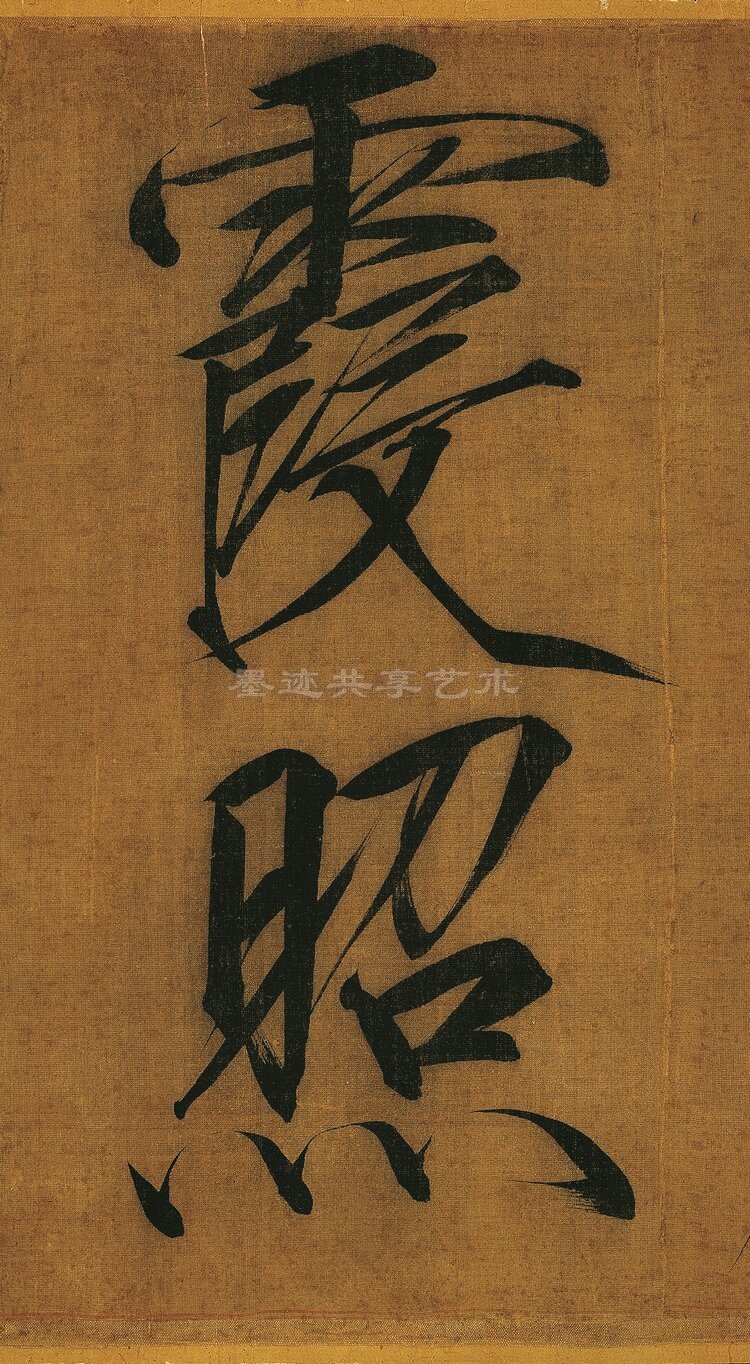 霞照
墨迹共享艺术